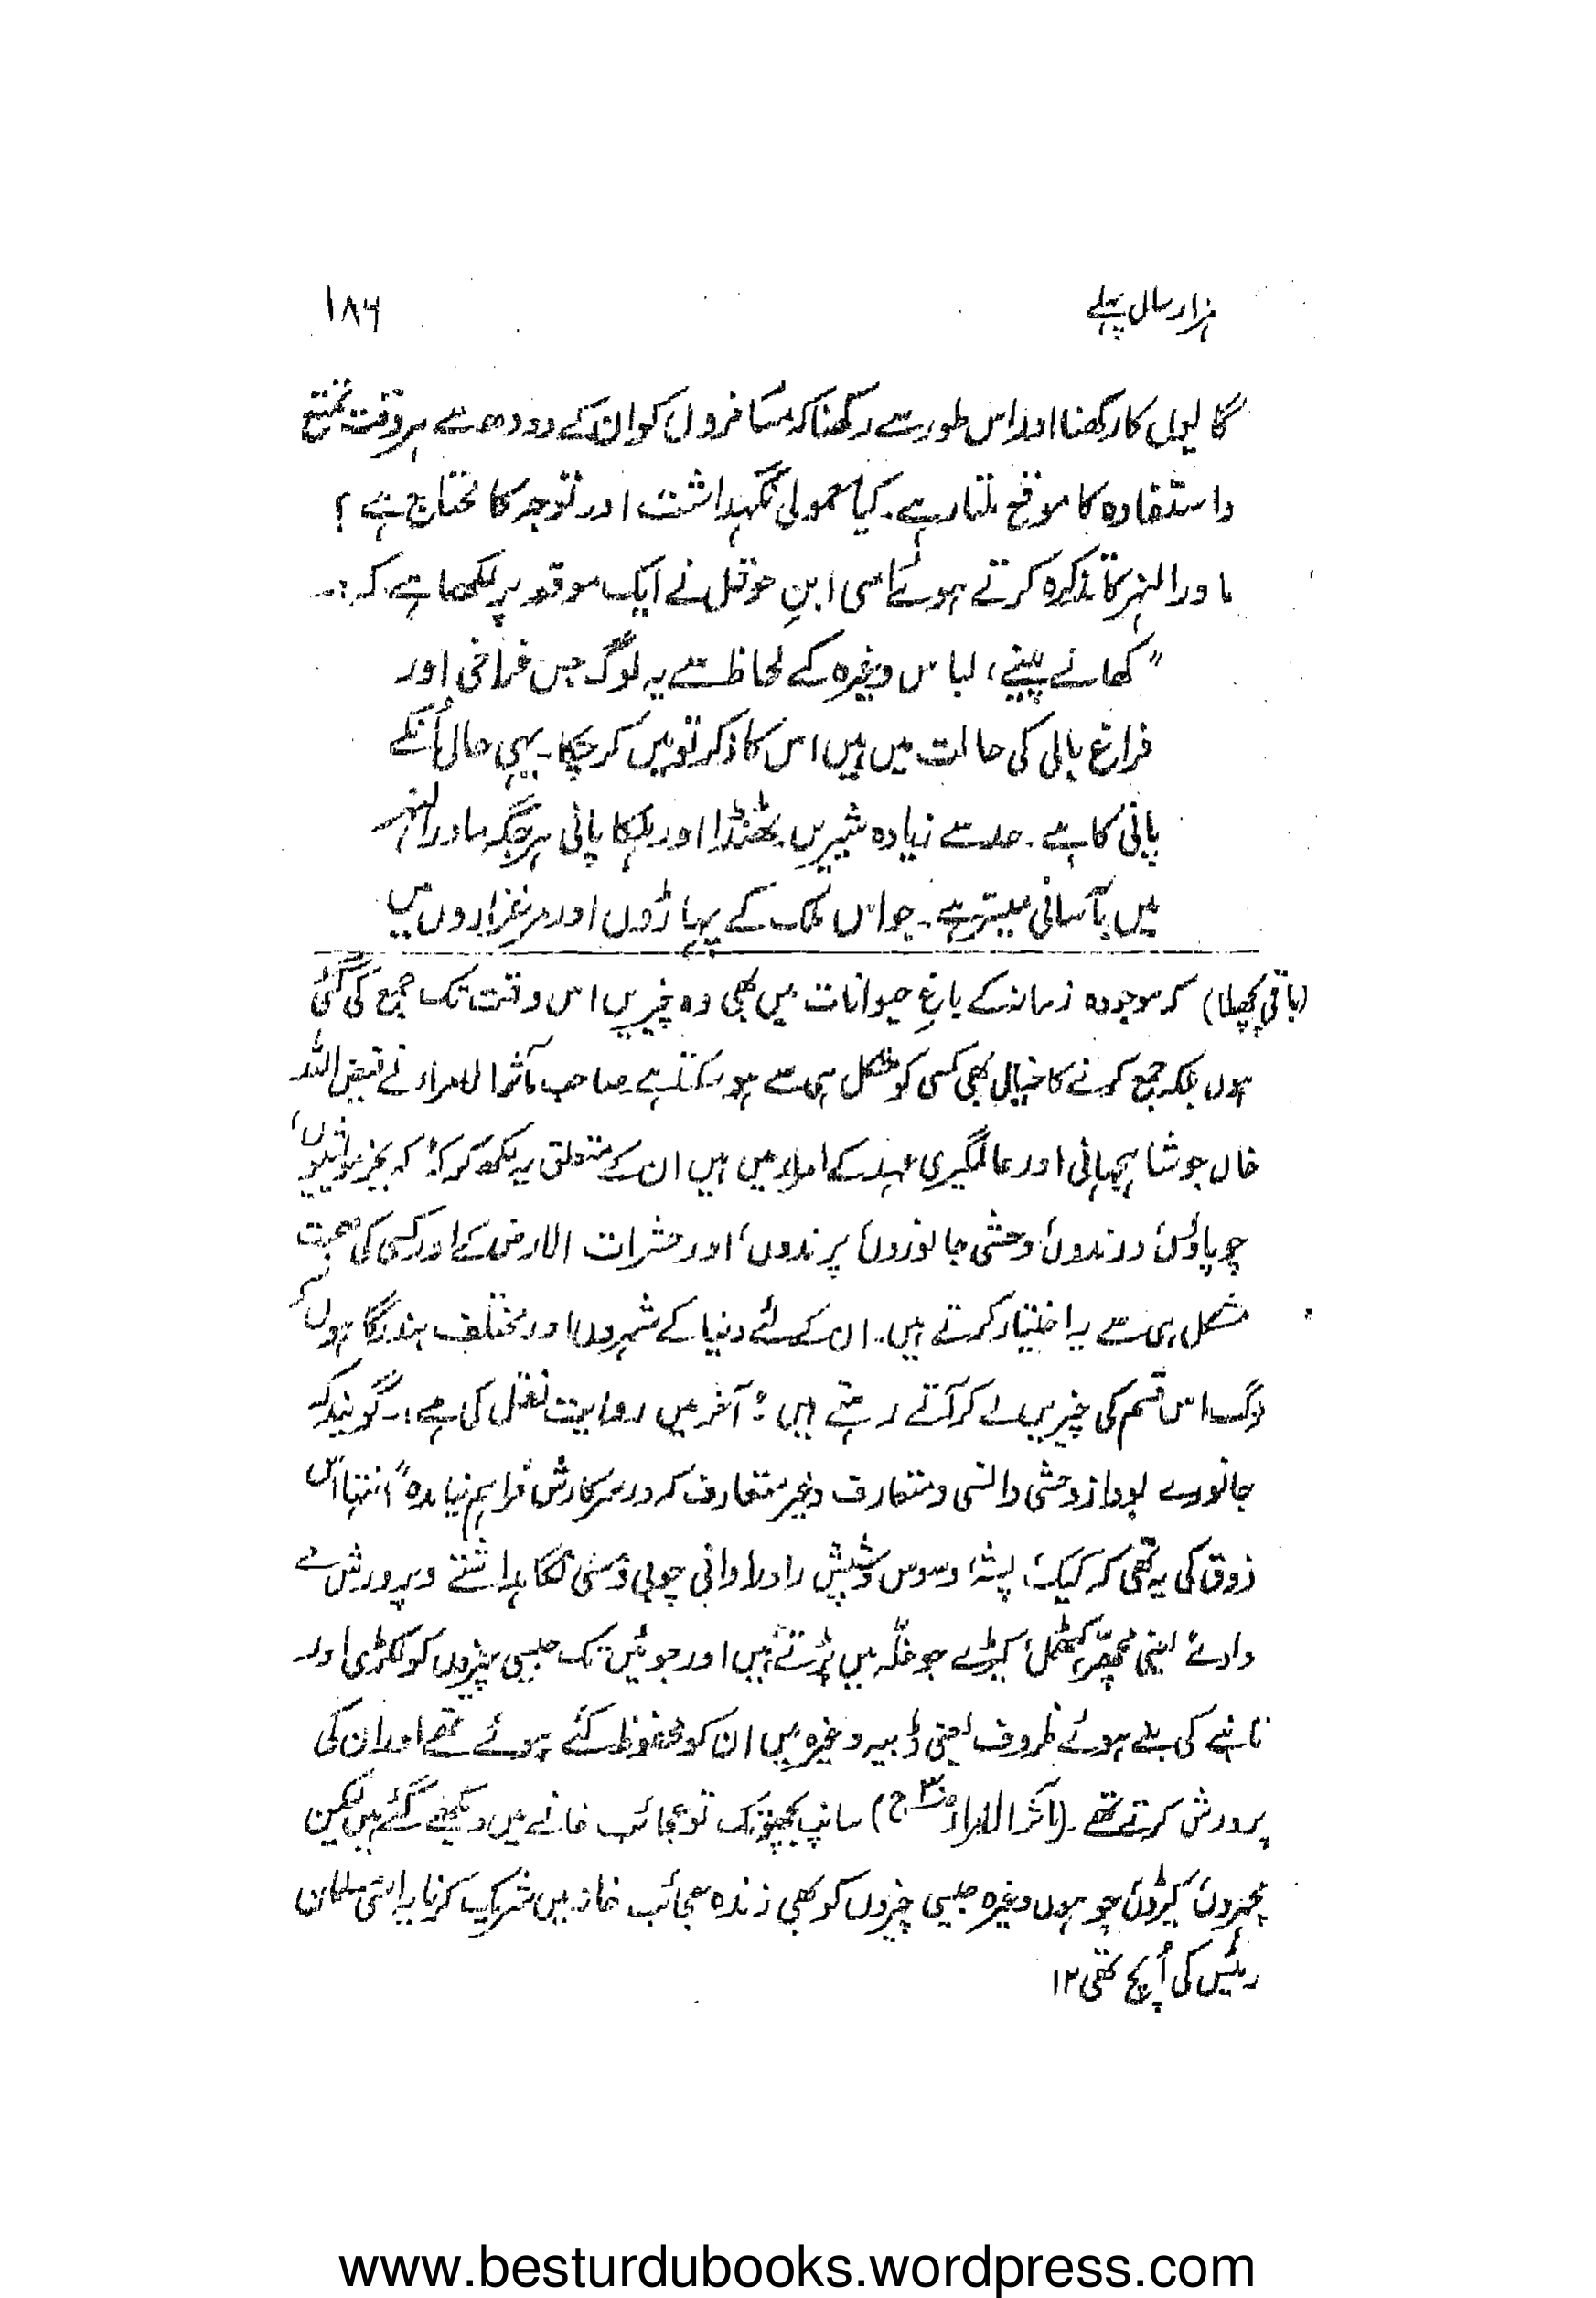 ہزار سال پہلے
۱۸۶
گایوں کا رکھنا اور اس طور سے رکھنا کہ مسافروں کو ان کے دودھ سے ہر وقت تمتع
واستفادہ کا موقع ملتا رہے۔ کیا معمولی نگہداشت اور توجہ کا محتاج ہے؟
ماورالنہر کا تذکرہ کرتے ہوئے اسی ابنِ حوقل نے ایک موقعہ پر لکھا ہے کہ:۔
"کھانے پینے، لباس وغیرہ کے لحاظ سے یہ لوگ جس فراخی اور
فراغ بالی کی حالت میں ہیں اس کا ذکر تو میں کر چکا۔ یہی حال اُنکے
پانی کا ہے۔ حد سے زیادہ شیریں ٹھنڈا اور ہلکا پانی ہر جگہ ماورالنہر
میں بآسانی میسّر ہے۔ جو اس ملک کے پہاڑوں اور مرغزاروں میں
(باقی پچھلا) کہ موجودہ زمانہ کے باغِ حیوانات میں بھی وہ چیزیں اس وقت تک جمع کی گئی
ہوں بلکہ جمع کرنے کا خیال بھی کسی کو مشکل ہی سے ہو سکتا ہے صاحب مآثر الامراء نے فیض اللہ
خاں جو شاہجہانی اور عالمگیری عہد کے امراء میں ہیں ان کے متعلق یہ لکھ کر کہ بجز مواشیوں،
چوپاؤں، درندوں، وحشی جانوروں، پرندوں، اور حشرات الارض کے اور کسی کی صحبت
مشکل ہی سے یہ اختیار کرتے ہیں۔ ان کے لئے دنیا کے شہروں اور مختلف بندرگاہوں سے
لوگ اس قسم کی چیزیں لے کر آتے رہتے ہیں: آخر میں روایت نقل کی ہے:۔ گویند کہ
جانورے بود از وحشی وانسی ومتعارف وغیر متعارف کہ در سرکارش فراہم نیامدہ" انتہا اس
ذوق کی یہ تھی کہ کیک، پشہ، وسوس وشپش را در اوانی چوبی ومسی نگاہداشتے وپرورش مے
دادے، یعنی مچھر، کھٹمل، کیڑے جو غلّہ میں پڑتے ہیں اور جوئیں تک جیسی چیزوں کو لکڑی اور
تانبے کی بنے ہوئے ظروف یعنی ڈبیہ وغیرہ میں ان کو محفوظ کئے ہوئے تھے اور ان کی
پرورش کرتے تھے۔ (مآثر الامراء ج) سانپ بچھو تک تو عجائب خانے میں دیکھے گئے ہیں لیکن
مچھروں، کیڑوں، جوہوں وغیرہ جیسی چیزوں کو بھی زندہ عجائب خانہ میں شریک کرنا یہ اسی مسلمان
رئیس کی اُپج تھی ۱۲
www.besturdubooks.wordpress.com